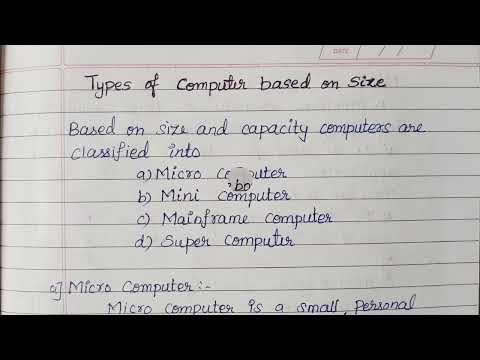 DATE / /
Types of Computer based on Size
Based on size and capacity computers are
classified into
a) Micro
b) Mini Computer
c) Mainframe Computer
d) Super Computer
a] Micro Computer :-
Micro computer is a small, personal